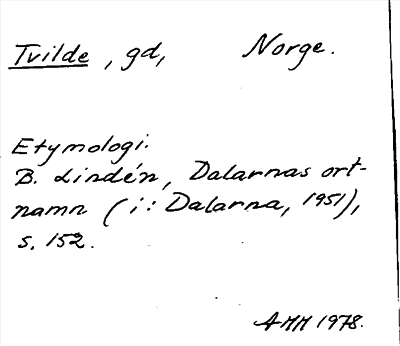 Tvilde, gd, Norge.
Etymologi.
B. Lindén, Dalarnas ort-
namn (i: Dalarna, 1951),
s. 152.
AMM 1978.